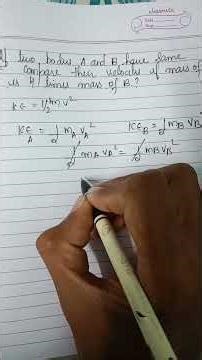 If two bodies A and B have same
Compare their velocities if mass of
is 4 times mass of B?
KE = 1/2 m v²
KE_A = 1/2 m_A v_A² KE_B = 1/2 m_B v_B²
1/2 m_A v_A² = 1/2 m_B v_B²